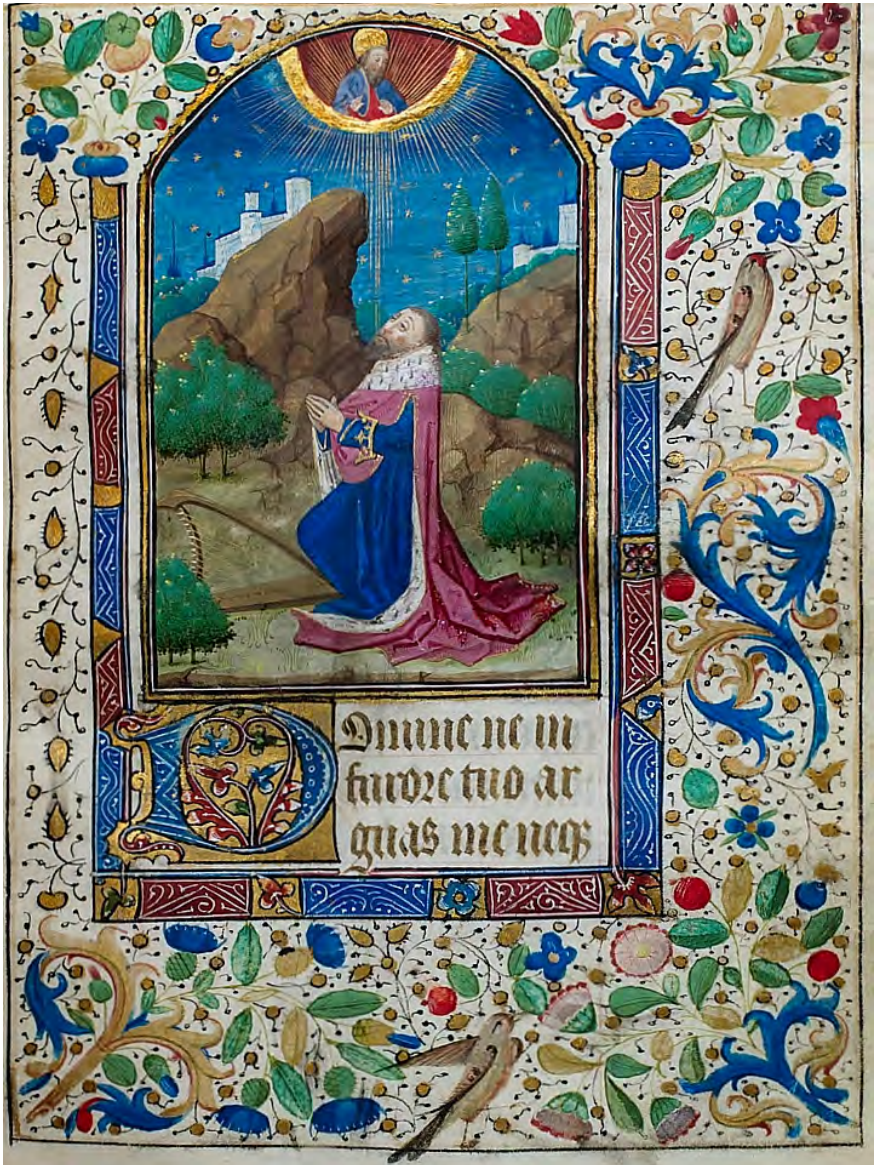 Domine ne in
furore tuo ar
guas me neqꝫ